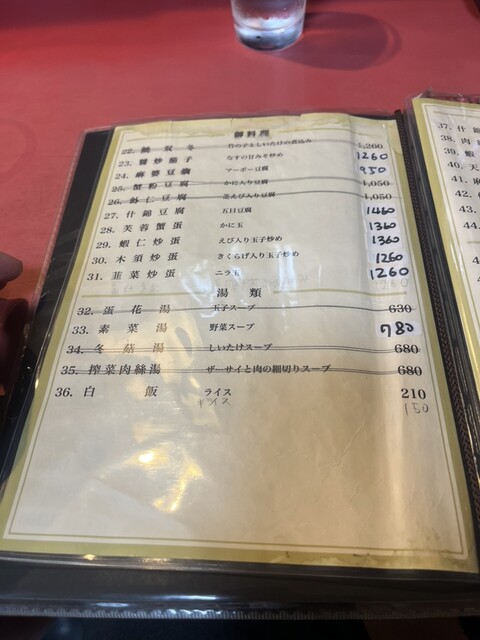 御料理
22. 焼双冬 竹の子としいたけの煮込み 1,260
23. 醤炒茄子 なすの甘みそ炒め 1260
24. 麻婆豆腐 マーボー豆腐 950
25. 蟹粉豆腐 かに入り豆腐 1,050
26. 虾仁豆腐 芝えび入り豆腐 1,050
27. 什錦豆腐 五目豆腐 1460
28. 芙蓉蟹蛋 かに玉 1360
29. 蝦仁炒蛋 えび入り玉子炒め 1360
30. 木須炒蛋 きくらげ入り玉子炒め 1260
31. 韮菜炒蛋 ニラ玉 1260
湯類
32. 蛋花湯 玉子スープ 630
33. 素菜湯 野菜スープ 780
34. 冬菇湯 しいたけスープ 680
35. 搾菜肉絲湯 ザーサイと肉の細切りスープ 680
36. 白飯 ライス 210
半ライス 150
37. 什錦
38. 肉
39. 蝦
40. 天
41. 麻
42.
43.
44.